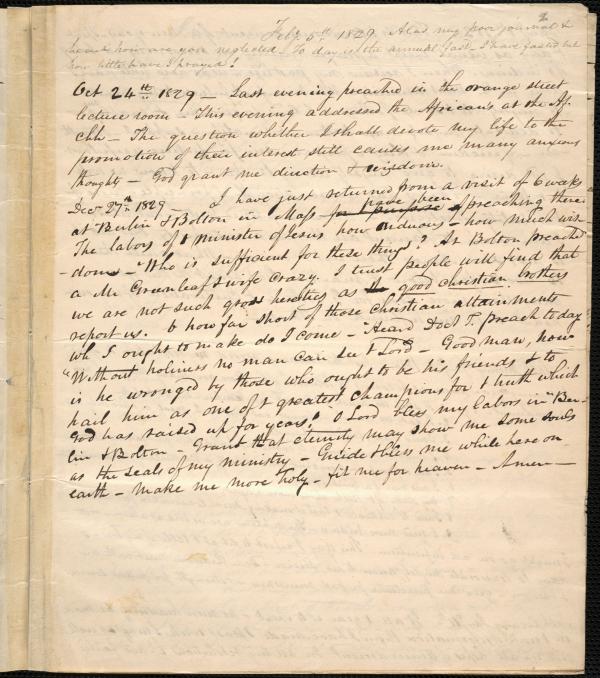 2
Feby 5th 1829. Alas my poor journal &
heart how are you neglected - To day is the annual fast - I have fasted but
how little have I prayed!
Oct 24th 1829 - Last evening preached in the orange street
lecture room - This evening addressed the Africans at the Af.
chh - The question whether I shall devote my life to the
promotion of their interest still causes me many anxious
thoughts - God grant me direction & wisdom.
Decr 27th 1829 - I have just returned from a visit of 6 weeks
at Berlin & Bolton in Mass have been preaching there.
The labors of a minister of Jesus how arduous - how much wis-
-dom - "Who is sufficient for these things"? At Bolton preached
a Mr Greenleaf & wife crazy. I trust people will find that
we are not such gross hereticks as good christian brothers
report us. O how far short of those christian attainments
wh I ought to make do I come - Heard Doct T. preach to day
"Without holiness no man can see t Lord - Good man, how
is he wronged by those who ought to be his friends & to
hail him as one of t greatest champions for t truth which
God has raised up for years! O Lord bless my labors in Ber-
lin & Bolton - Grant that eternity may show me some souls
as the seals of my ministry - Guide & bless me while here on
earth - make me more holy - fit me for heaven - Amen -